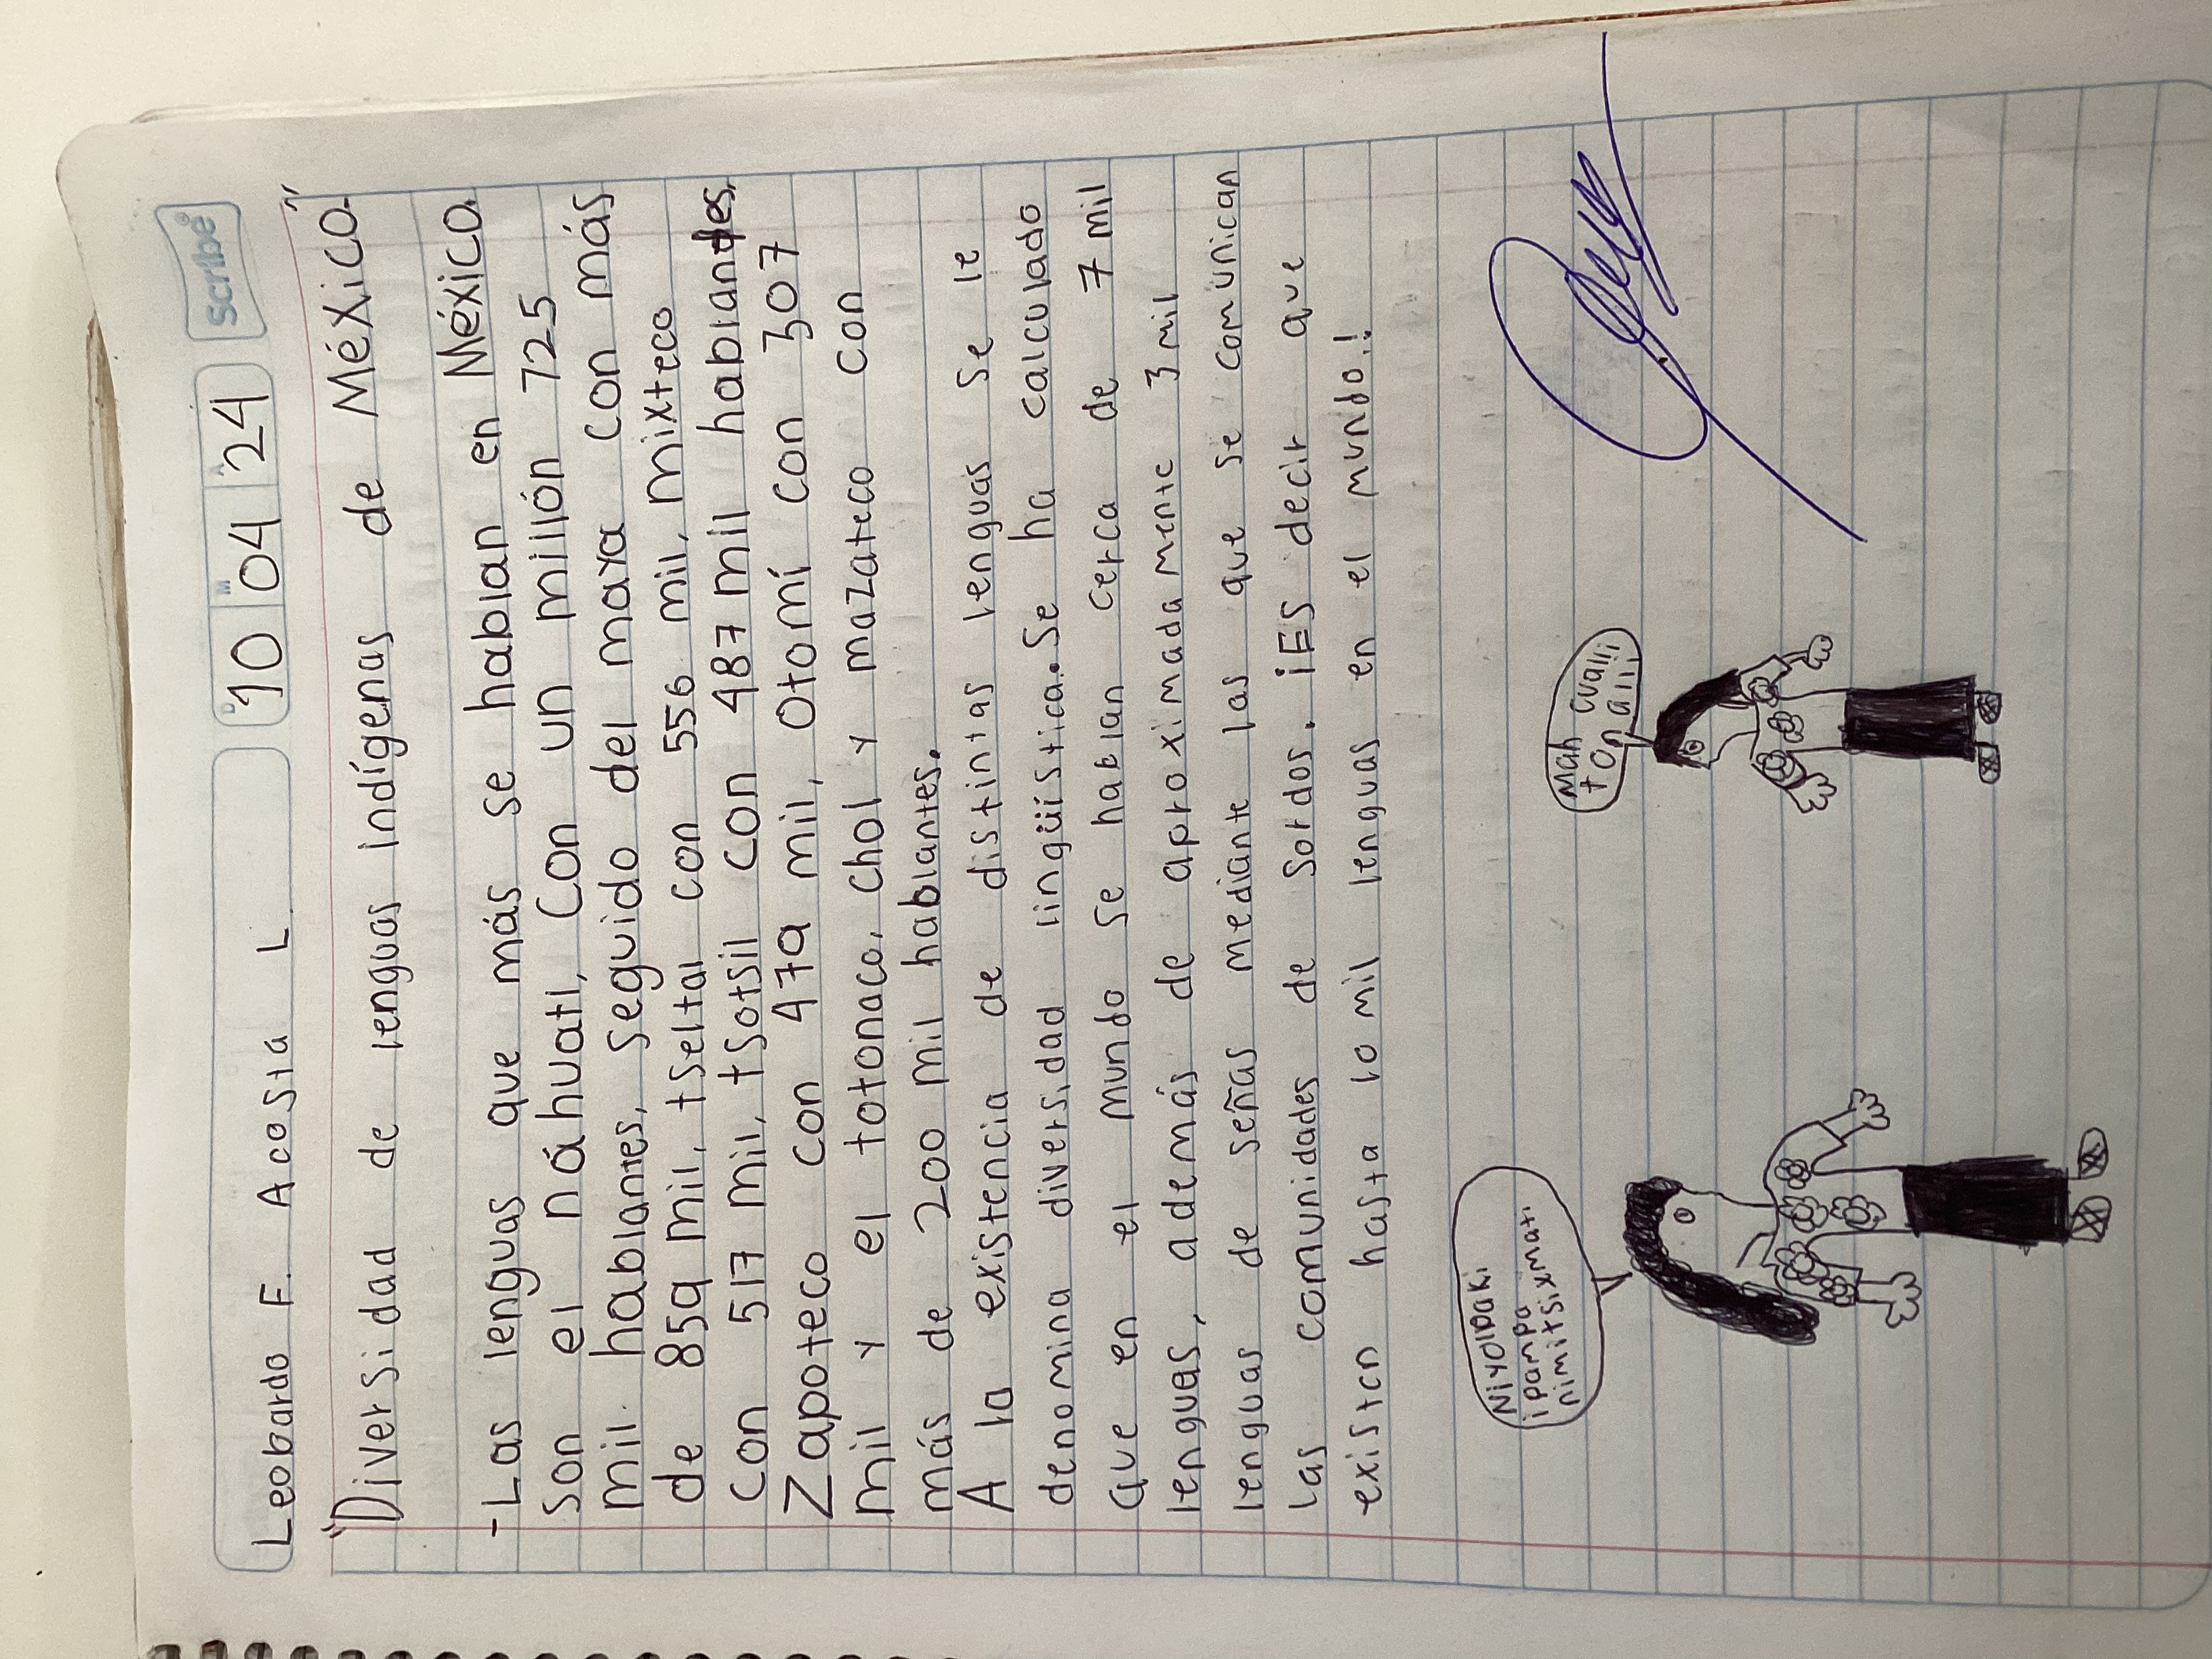 Scribe
Leobardo F. Acosta L.
D 10 M 04 A 24
"Diversidad de lenguas indígenas de México"
- Las lenguas que más se hablan en México
son el náhuatl, con un millón 725
mil hablantes, seguido del maya con más
de 859 mil, tseltal con 556 mil, mixteco
con 517 mil, tsotsil con 487 mil hablantes,
Zapoteco con 479 mil, Otomí con 307
mil y el totonaco, chol y mazateco con
más de 200 mil hablantes.
A la existencia de distintas lenguas se le
denomina diversidad lingüística. Se ha calculado
que en el mundo se hablan cerca de 7 mil
lenguas, además de aproximadamente 3 mil
lenguas de señas mediante las que se comunican
las comunidades de sordos. ¡ES decir que
existen hasta 10 mil lenguas en el mundo!
Niyolpaki
ipampa
nimitsixmati
Mah cualli
tonalli